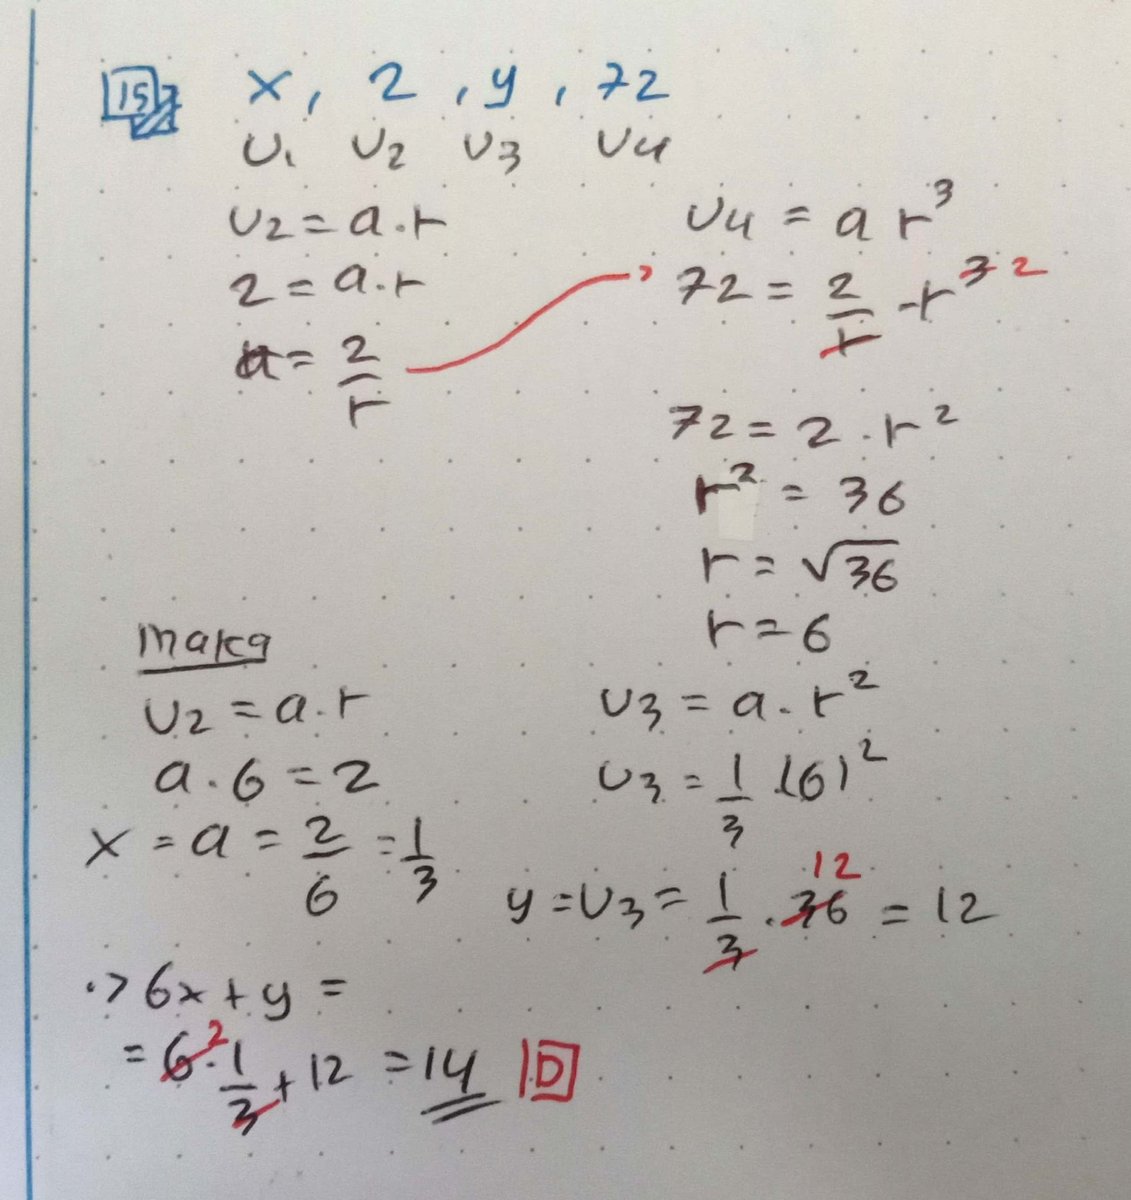 15
x, 2, y, 72
U1 U2 U3 U4
U2 = a.r
2 = a.r
a = 2/r
U4 = a r³
72 = 2/r · r³ 2
72 = 2 . r²
r² = 36
r = √36
r = 6
maka
U2 = a.r
a . 6 = 2
x = a = 2/6 = 1/3
U3 = a. r²
U3 = 1/3 (6)²
12
y = U3 = 1/3 . 36 = 12
.> 6x + y =
= 6 2 . 1/3 + 12 = 14 D